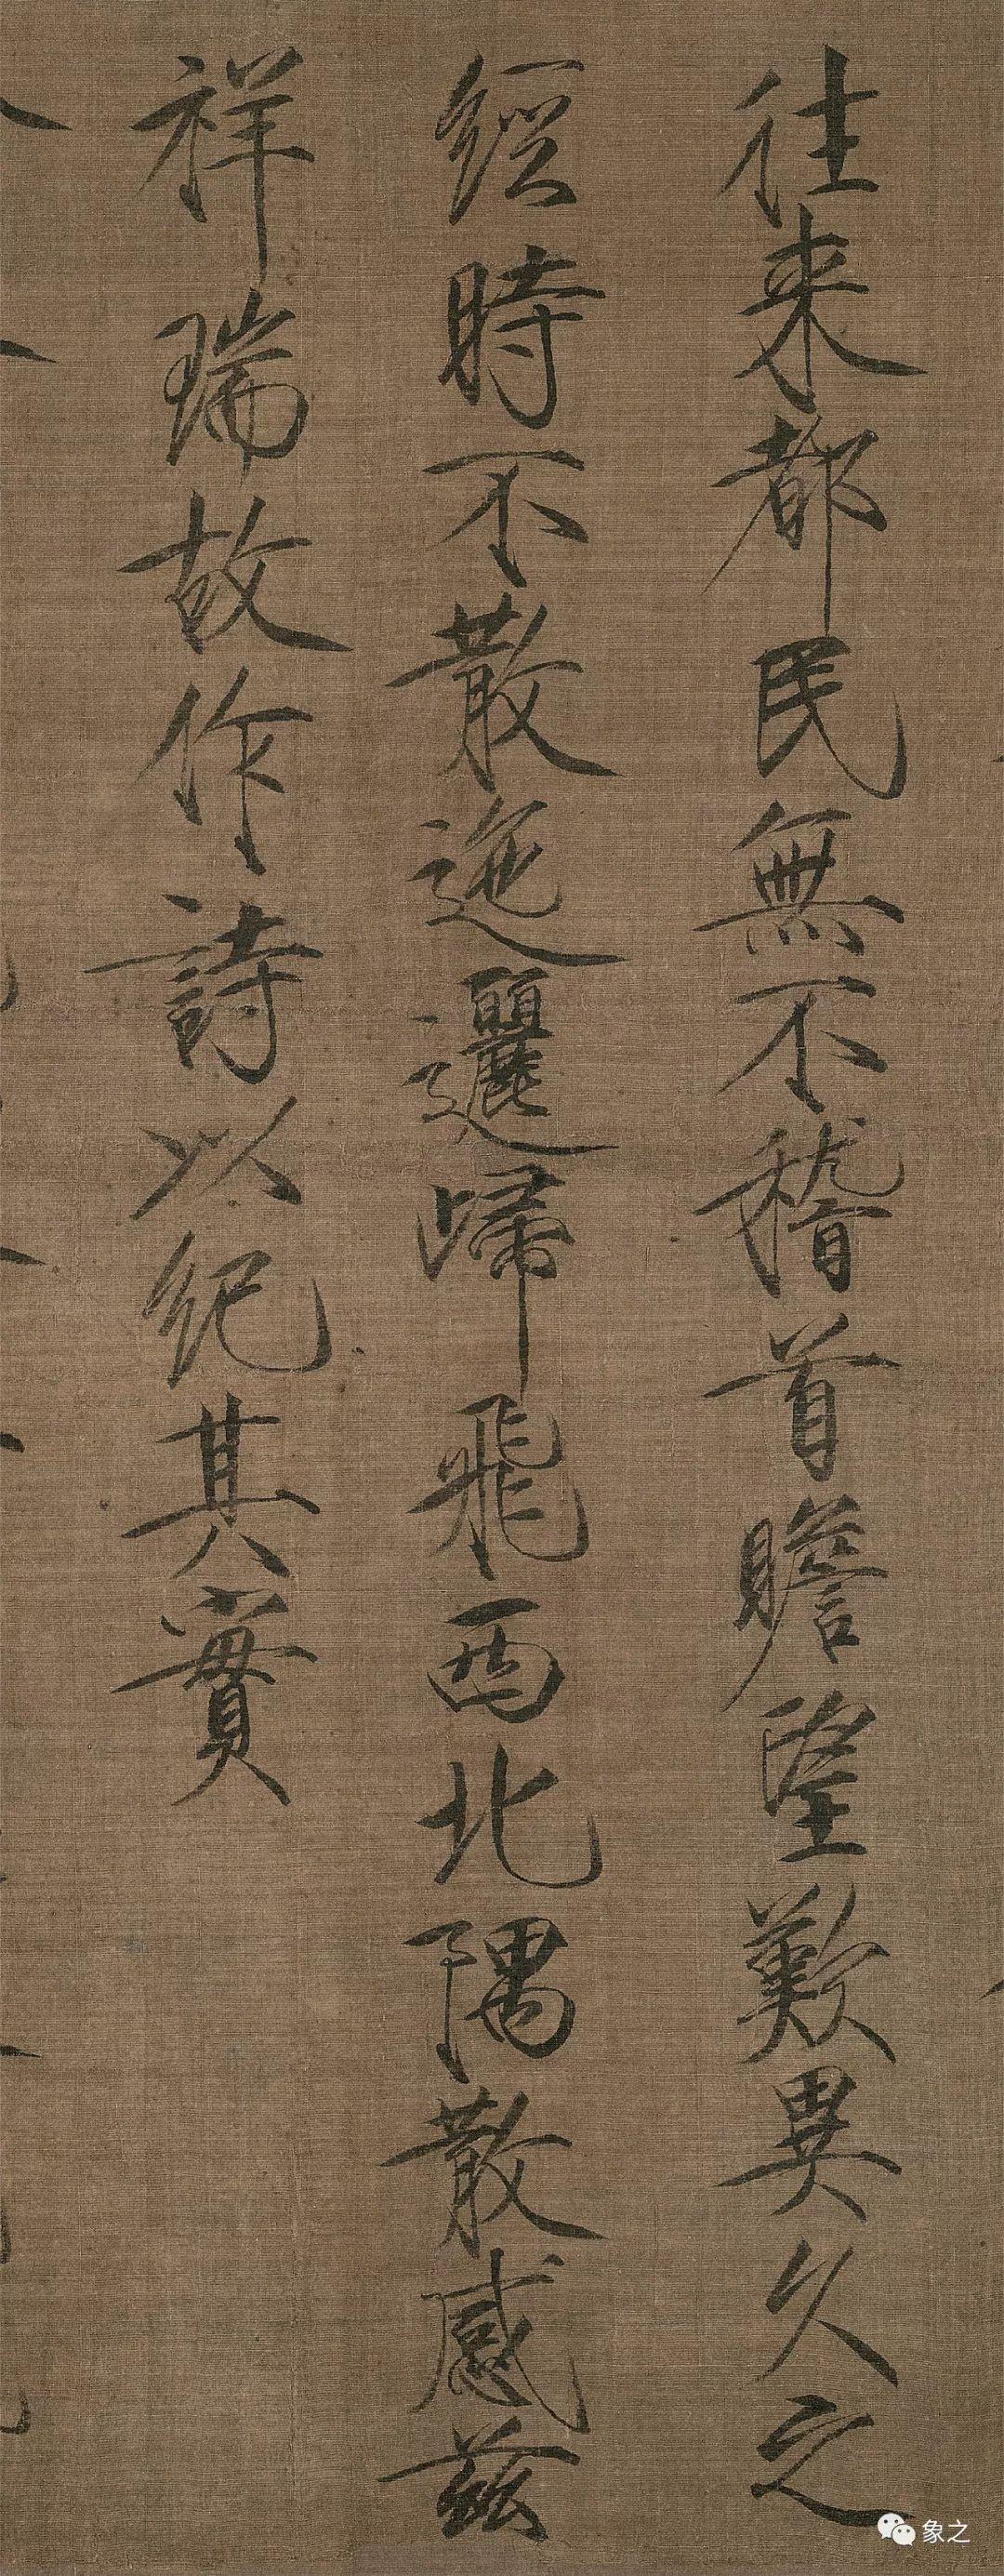 往来都民無不稽首瞻望歎異久之
經時不散迤邐歸飛西北隅散感兹
祥瑞故作詩以紀其實
象之